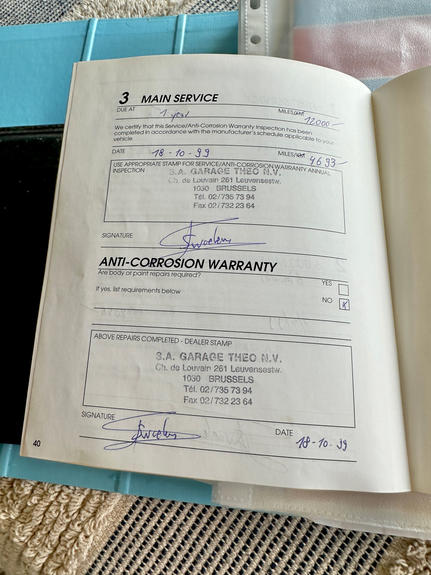 3 MAIN SERVICE
DUE AT 1 year MILES/KM 12000 -
We certify that this Service/Anti-Corrosion Warranty Inspection has been
completed in accordance with the manufacturer's schedule applicable to your
vehicle.
DATE 18-10-99 MILES/KM 4693 -
USE APPROPRIATE STAMP FOR SERVICE/ANTI-CORROSION WARRANTY ANNUAL
INSPECTION
S.A. GARAGE THEO N.V.
Ch. de Louvain 261 Leuvensestw.
1030 BRUSSELS
Tél. 02/735 73 94
Fax 02/732 23 64
SIGNATURE
ANTI-CORROSION WARRANTY
Are body or paint repairs required?
YES
If yes, list requirements below
NO X
ABOVE REPAIRS COMPLETED - DEALER STAMP
S.A. GARAGE THEO N.V.
Ch. de Louvain 261 Leuvensestw.
1030 BRUSSELS
Tél. 02/735 73 94
Fax 02/732 23 64
SIGNATURE
DATE 18-10-99
40